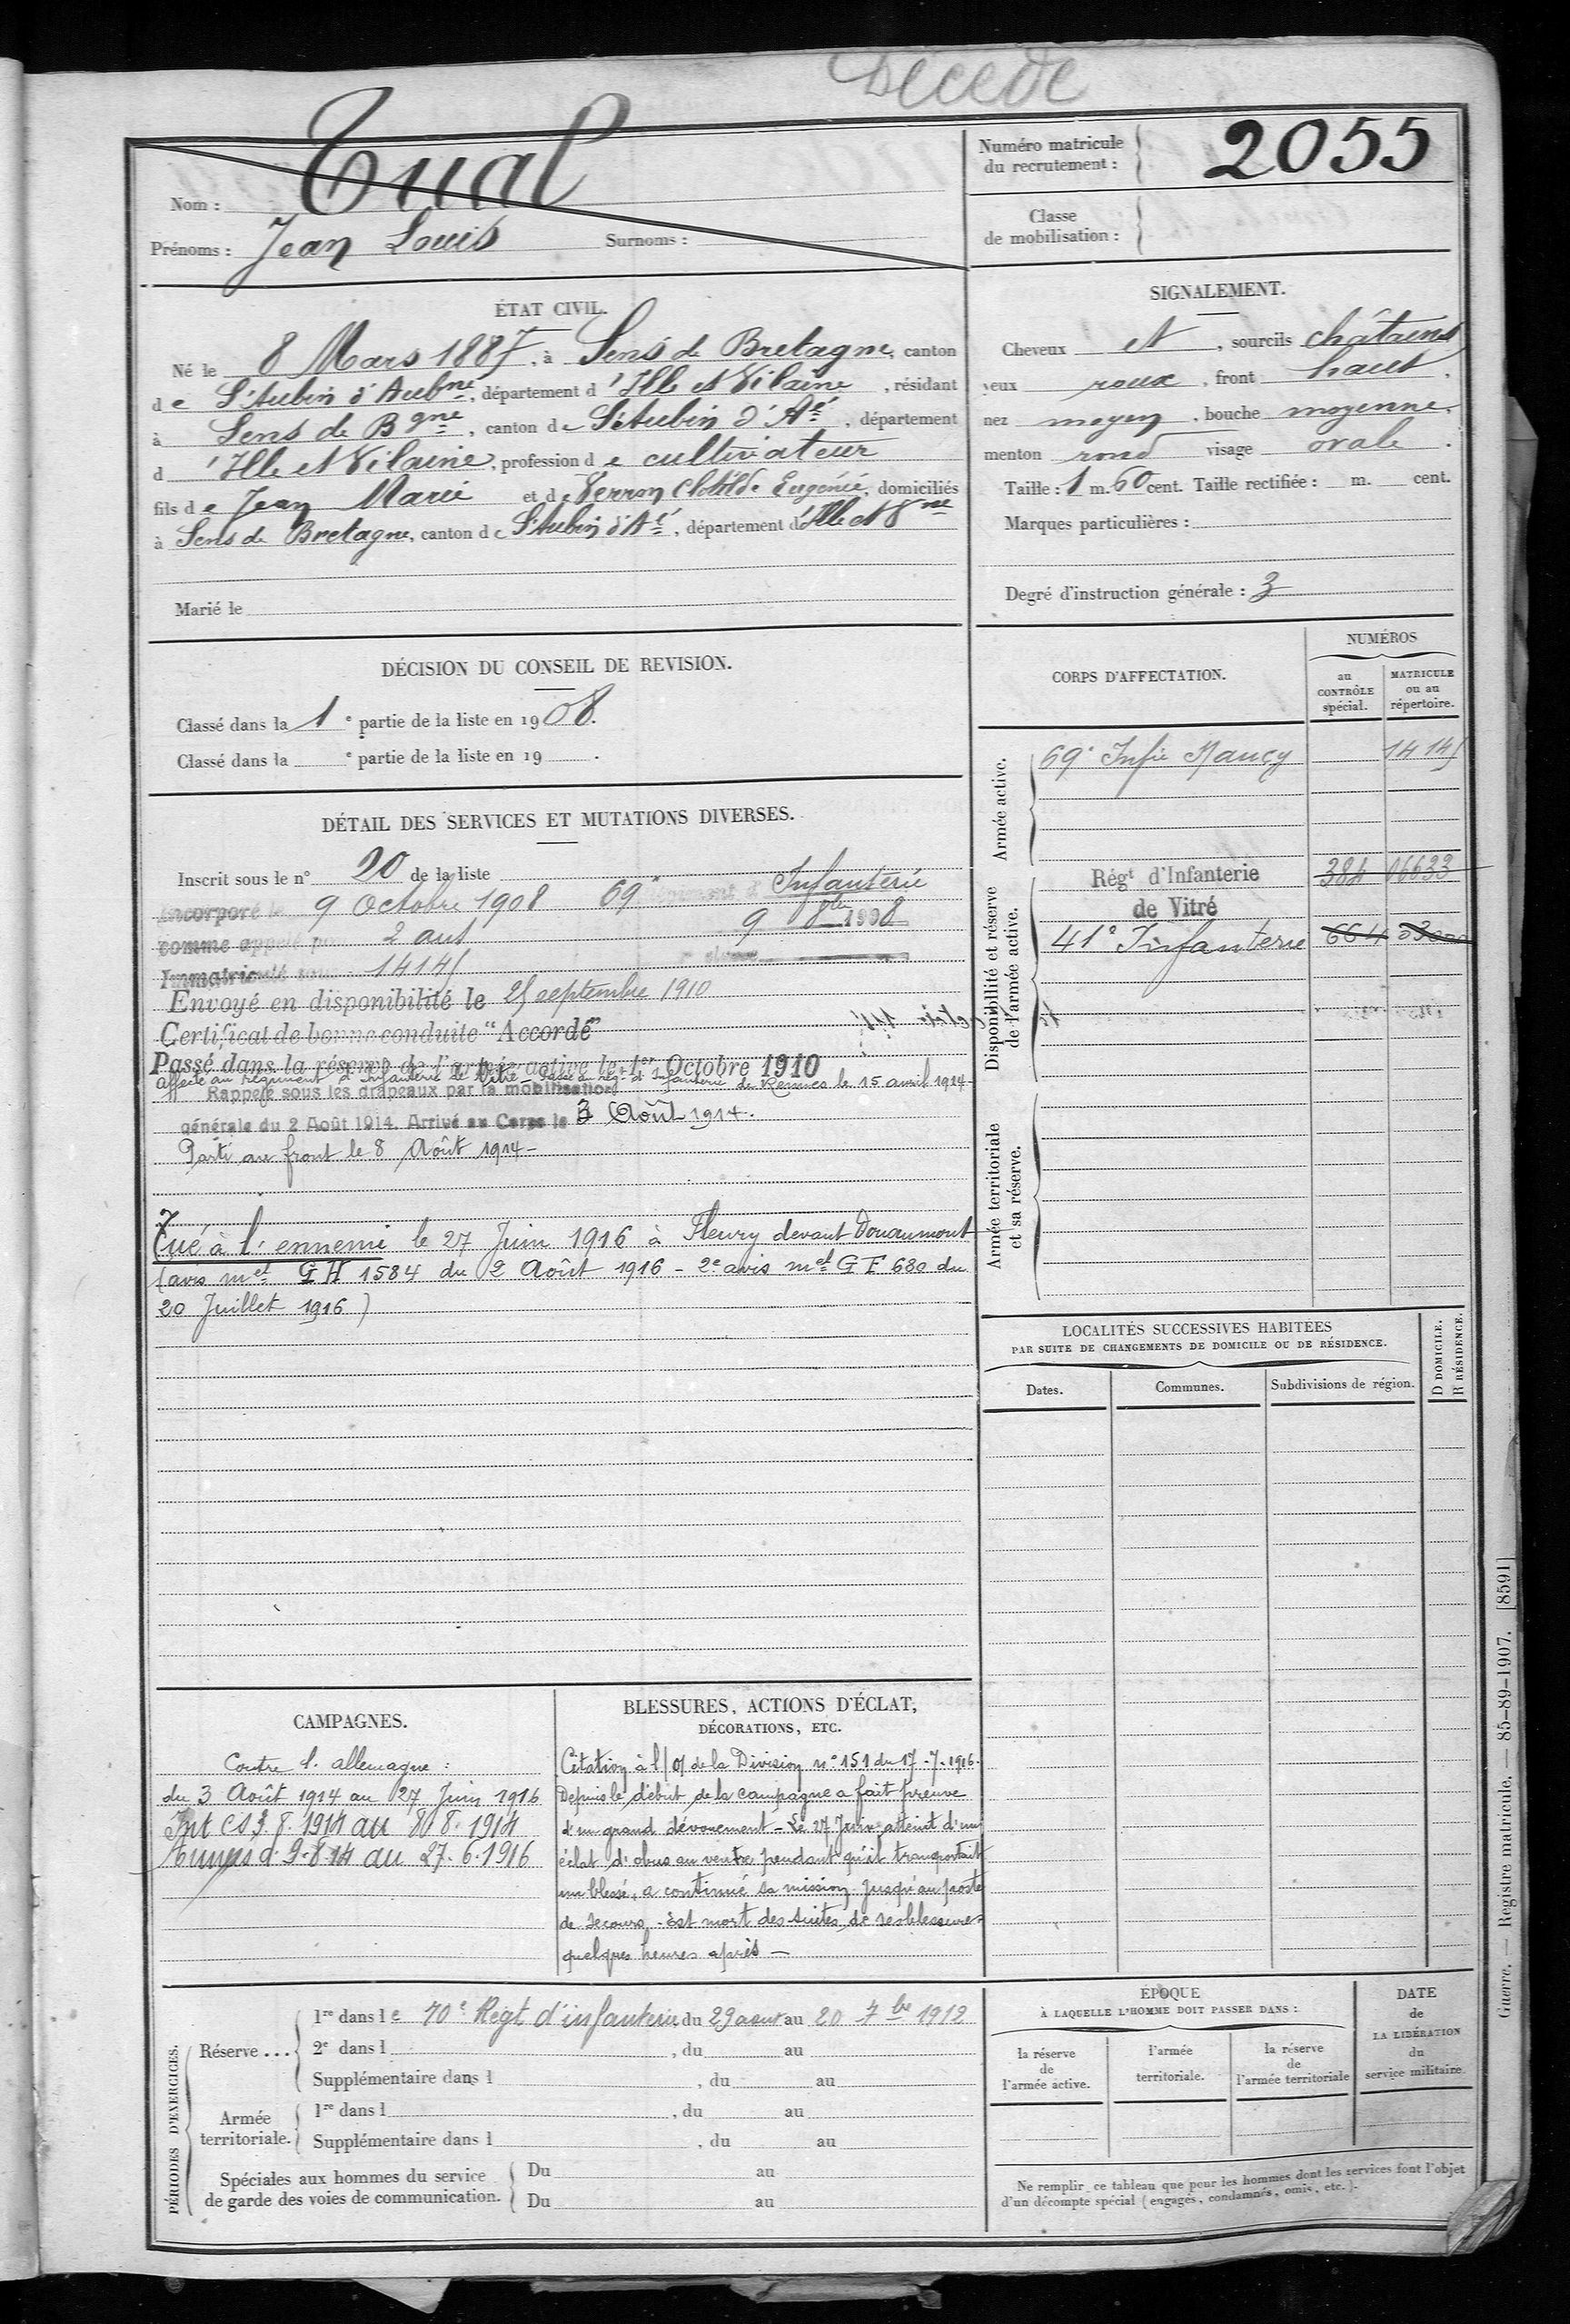 Décédé
Nom : Tual
Prénoms : Jean Louis Surnoms :
Numéro matricule
du recrutement : 2055
Classe
de mobilisation :
ÉTAT CIVIL.
Né le 8 Mars 1887, à Sens de Bretagne, canton
de St Aubin d'Aubne, département d'Ille et Vilaine, résidant
à Sens de Bgne, canton de St Aubin d'Aé, département
d'Ille et Vilaine, profession de cultivateur
fils de Jean Marie et de Perron Clotilde Eugénie, domiciliés
à Sens de Bretagne, canton de St Aubin d'Aé, département d'Ille et Vne
Marié le
SIGNALEMENT.
Cheveux et, sourcils châtains
yeux roux, front haut,
nez moyen, bouche moyenne,
menton rond visage ovale.
Taille : 1 m. 60 cent. Taille rectifiée : m. cent.
Marques particulières :
Degré d'instruction générale : 3
DÉCISION DU CONSEIL DE REVISION.
Classé dans la 1e partie de la liste en 1908.
Classé dans la e partie de la liste en 19 .
CORPS D'AFFECTATION.
NUMÉROS
au
CONTRÔLE
spécial.
MATRICULE
ou au
répertoire.
Armée active.
69e Infie Nancy 14145
Disponibilité et réserve
de l'armée active.
Régt d'Infanterie 384 06633
de Vitré
41e Infanterie 664
Armée territoriale
et sa réserve.
DÉTAIL DES SERVICES ET MUTATIONS DIVERSES.
Inscrit sous le n° 20 de la liste
Incorporé le 9 Octobre 1908 69e Régiment d'Infanterie
comme appelé pour 2 ans 9 8bre 1908
Immatriculé sous 14145
Envoyé en disponibilité le 25 septembre 1910
Certificat de bonne conduite "Accordé"
Passé dans la réserve de l'armée active le 1er Octobre 1910
Affecté au régiment d'Infanterie de Vitré – Passé au rég. d'Infanterie de Rennes le 15 avril 1914
Rappelé sous les drapeaux par la mobilisation
générale du 2 Août 1914. Arrivé au Corps le 3 Août 1914.
Parti au front le 8 Août 1914 –
Tué à l'ennemi le 27 Juin 1916 à Fleury devant Douaumont
(avis mel G H 1584 du 2 Août 1916 – 2e avis mel G F 680 du
20 Juillet 1916)
LOCALITÉS SUCCESSIVES HABITÉES
PAR SUITE DE CHANGEMENTS DE DOMICILE OU DE RÉSIDENCE.
Dates. Communes. Subdivisions de région. D DOMICILE. R RÉSIDENCE.
CAMPAGNES.
Contre l'allemagne :
du 3 Août 1914 au 27 Juin 1916
Int CS 3.8.1914 au 8.8.1914
Armées d. 9.8.14 au 27.6.1916
BLESSURES, ACTIONS D'ÉCLAT,
DÉCORATIONS, ETC.
Citation à l'/O/ de la Division n° 151 du 17.7.1916.
Depuis le début de la campagne a fait preuve
d'un grand dévouement – Le 27 Juin atteint d'un
éclat d'obus au ventre pendant qu'il transportait
un blessé, a continué sa mission jusqu'au poste
de secours. – Est mort des suites de ses blessures
quelques heures après –
PÉRIODES D'EXERCICES.
Réserve ...
1re dans le 70e Régt d'infanterie du 29 aout au 20 7bre 1912
2e dans l , du au
Supplémentaire dans l , du au
Armée
territoriale.
1re dans l , du au
Supplémentaire dans l , du au
Spéciales aux hommes du service
de garde des voies de communication.
Du au
Du au
ÉPOQUE
À LAQUELLE L'HOMME DOIT PASSER DANS :
la réserve
de
l'armée active.
l'armée
territoriale.
la réserve
de
l'armée territoriale
DATE
de
LA LIBÉRATION
du
service militaire.
Ne remplir ce tableau que pour les hommes dont les services font l'objet
d'un décompte spécial (engagés, condamnés, omis, etc.).
Guerre. — Registre matricule. — 85-89-1907. [8591]